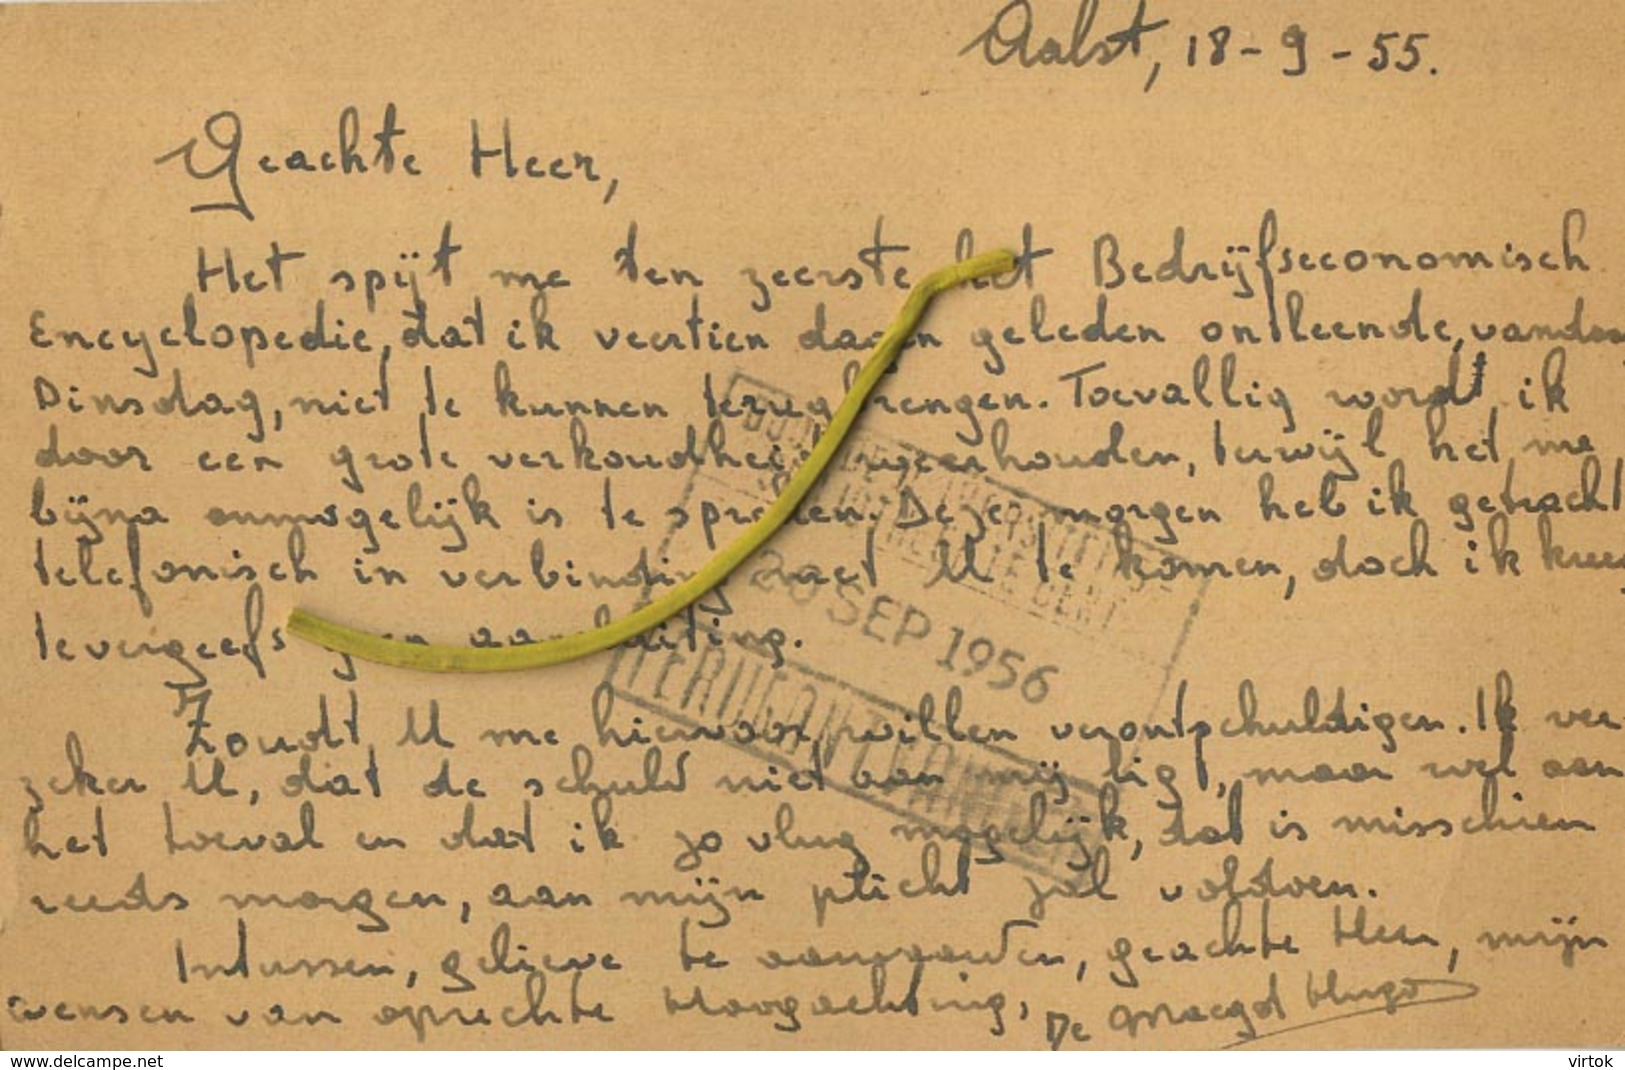 Aalst, 18-9-55.
Geachte Heer,
Het spijt me ten zeerste het Bedrijfseconomisch
Encyclopedie, dat ik veertien dagen geleden ontleende,
Dinsdag, niet te kunnen terugbrengen. Toevallig wordt ik
door een grote verkoudheid weerhouden, terwijl het me
bijna onmogelijk is te spreken. Deze morgen heb ik getracht
telefonisch in verbinding met U te komen, doch ik kreeg
tevergeefs geen aansluiting.
Zoudt U me hiervoor willen verontschuldigen. Ik ver-
zeker U, dat de schuld niet aan mij ligt, maar wel aan
het toeval en dat ik zo vlug mogelijk, dat is misschien
reeds morgen, aan mijn plicht zal voldoen.
Intussen, gelieve te aanvaarden, geachte Heer, mijn
wensen van oprechte Hoogachting,
De Maegd Hugo
20 SEP 1956
www.delcampe.net
virtok